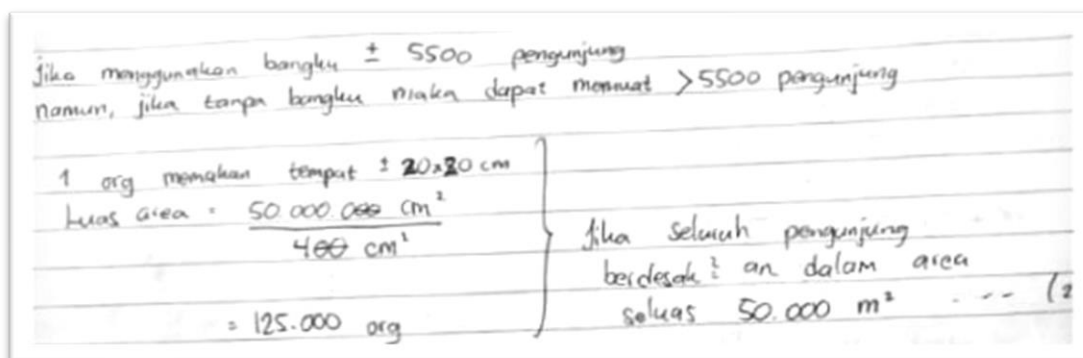 Jika menggunakan bangku ± 5500 pengunjung
namun, jika tanpa bangku maka dapat memuat >5500 pengunjung
1 org memakan tempat ± 20x20 cm
Luas area = 50.000.000 cm²
400 cm²
= 125.000 org
Jika seluruh pengunjung
berdesak² an dalam area
seluas 50.000 m² .... (2